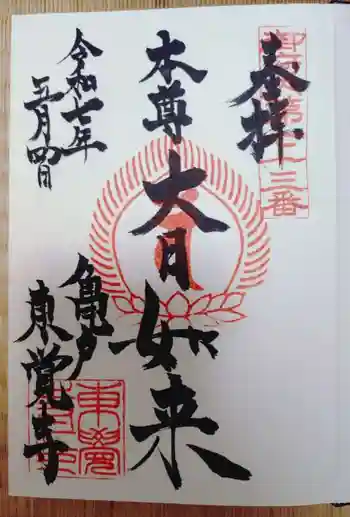 奉拝
御府内第七十三番
本尊 大日如来
亀戸
東覚寺
令和七年
五月四日